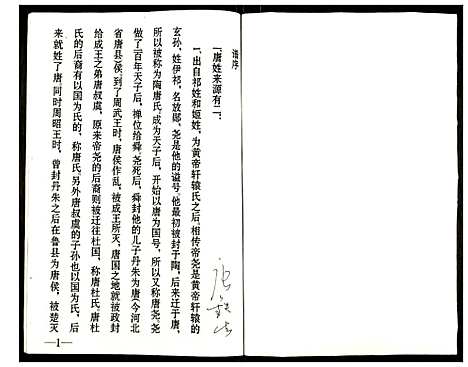 谱序
唐姓来源有二：
1.出自祁姓和姬姓，为黄帝轩辕氏之后。相传帝尧是黄帝轩辕的
玄孙，姓伊祁，名放勋，尧是他的谥号。他最初被封于陶，后来迁于唐，
所以被称为陶唐氏。成为天子后，开始以唐为国号，所以又称唐尧。尧
做了百年天子后，禅位给舜。尧死后，舜封他的儿子丹朱为唐（今河北
省唐县）侯。到了周武王时，唐侯作乱，被成王所灭，唐国之地就被改封
给成王之弟唐叔虞，原来帝尧的后裔则被迁往杜国，称唐杜氏。唐杜
氏的后裔有以国为氏的，称唐氏。另外唐叔虞的子孙也以国为氏，后
来就姓了唐。同时周昭王时，曾封丹朱之后在鲁县为唐侯，被楚灭
—1—